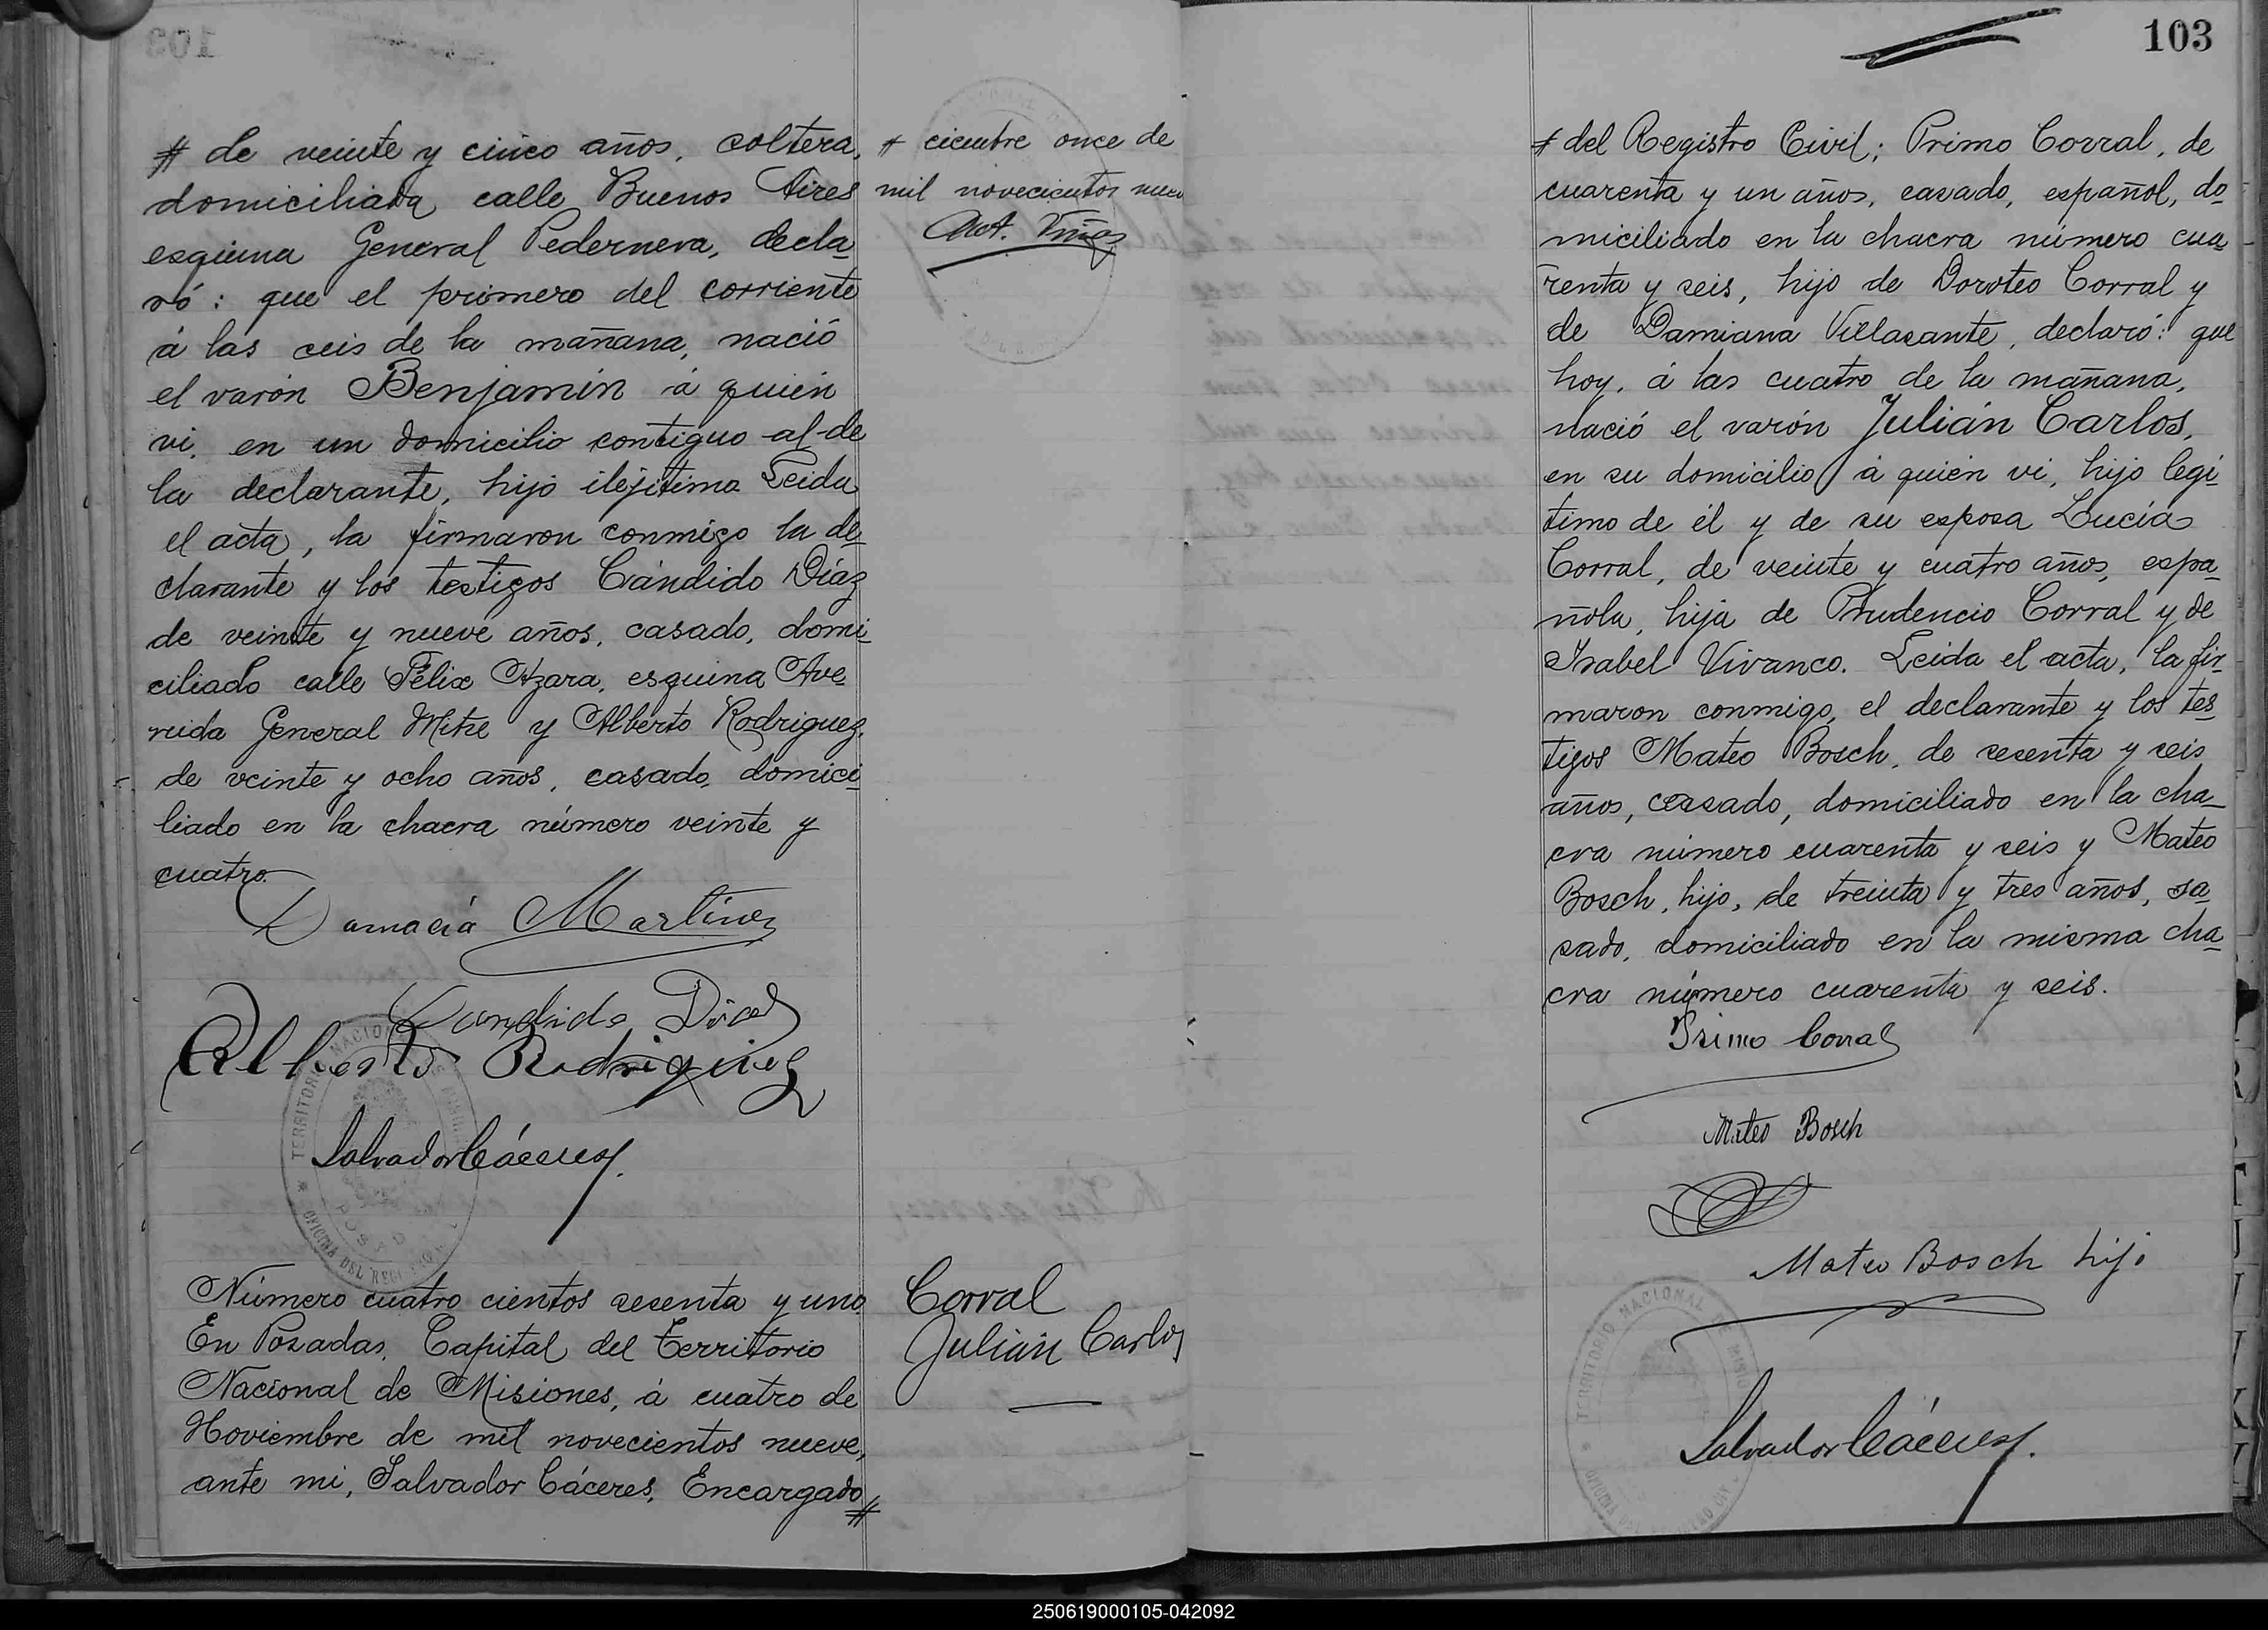 # de veinte y cinco años, soltera,
domiciliada calle Buenos Aires
esquina General Pedernera, decla-
ró: que el primero del corriente
á las seis de la mañana, nació
el varón Benjamín á quién
vi, en un domicilio contiguo al de
la declarante, hijo ilejítimo. Leida
el acta, la firmaron conmigo la de-
clarante y los testigos Cándido Díaz
de veinte y nueve años, casado, domi-
ciliado calle Félix Azara, esquina Ave-
nida General Mitre y Alberto Rodriguez,
de veinte y ocho años, casado, domici-
liado en la chacra número veinte y
cuatro.
Damacia Martínez
Candido Diaz
Alberto Rodriguez
Salvador Cáceres
TERRITORIO NACIONAL DE MISIONES
OFICINA DEL REGISTRO CIVIL
POSADAS
Número cuatro cientos sesenta y uno.
En Posadas, Capital del Territorio
Nacional de Misiones, á cuatro de
Noviembre de mil novecientos nueve,
ante mi, Salvador Cáceres, Encargado #
# ciembre once de
mil novecientos nuev
Corral
Julián Carlos
103
# del Registro Civil; Primo Corral, de
cuarenta y un años, casado, español, do-
miciliado en la chacra número cua-
renta y seis, hijo de Doroteo Corral y
de Damiana Villasante, declaró: que
hoy, á las cuatro de la mañana,
nació el varón Julián Carlos,
en su domicilio á quién vi, hijo legí-
timo de él y de su esposa Lucía
Corral, de veinte y cuatro años, espa-
ñola, hija de Prudencio Corral y de
Isabel Vivanco. Leida el acta, la fir-
maron conmigo, el declarante y los tes-
tigos Mateo Bosch, de sesenta y seis
años, casado, domiciliado en la cha-
cra número cuarenta y seis y Mateo
Bosch, hijo, de treinta y tres años, ca-
sado, domiciliado en la misma cha-
cra número cuarenta y seis.
Primo Corral
Mateo Bosch
Mateo Bosch hijo
TERRITORIO NACIONAL DE MISIONES
Salvador Cáceres
250619000105-042092